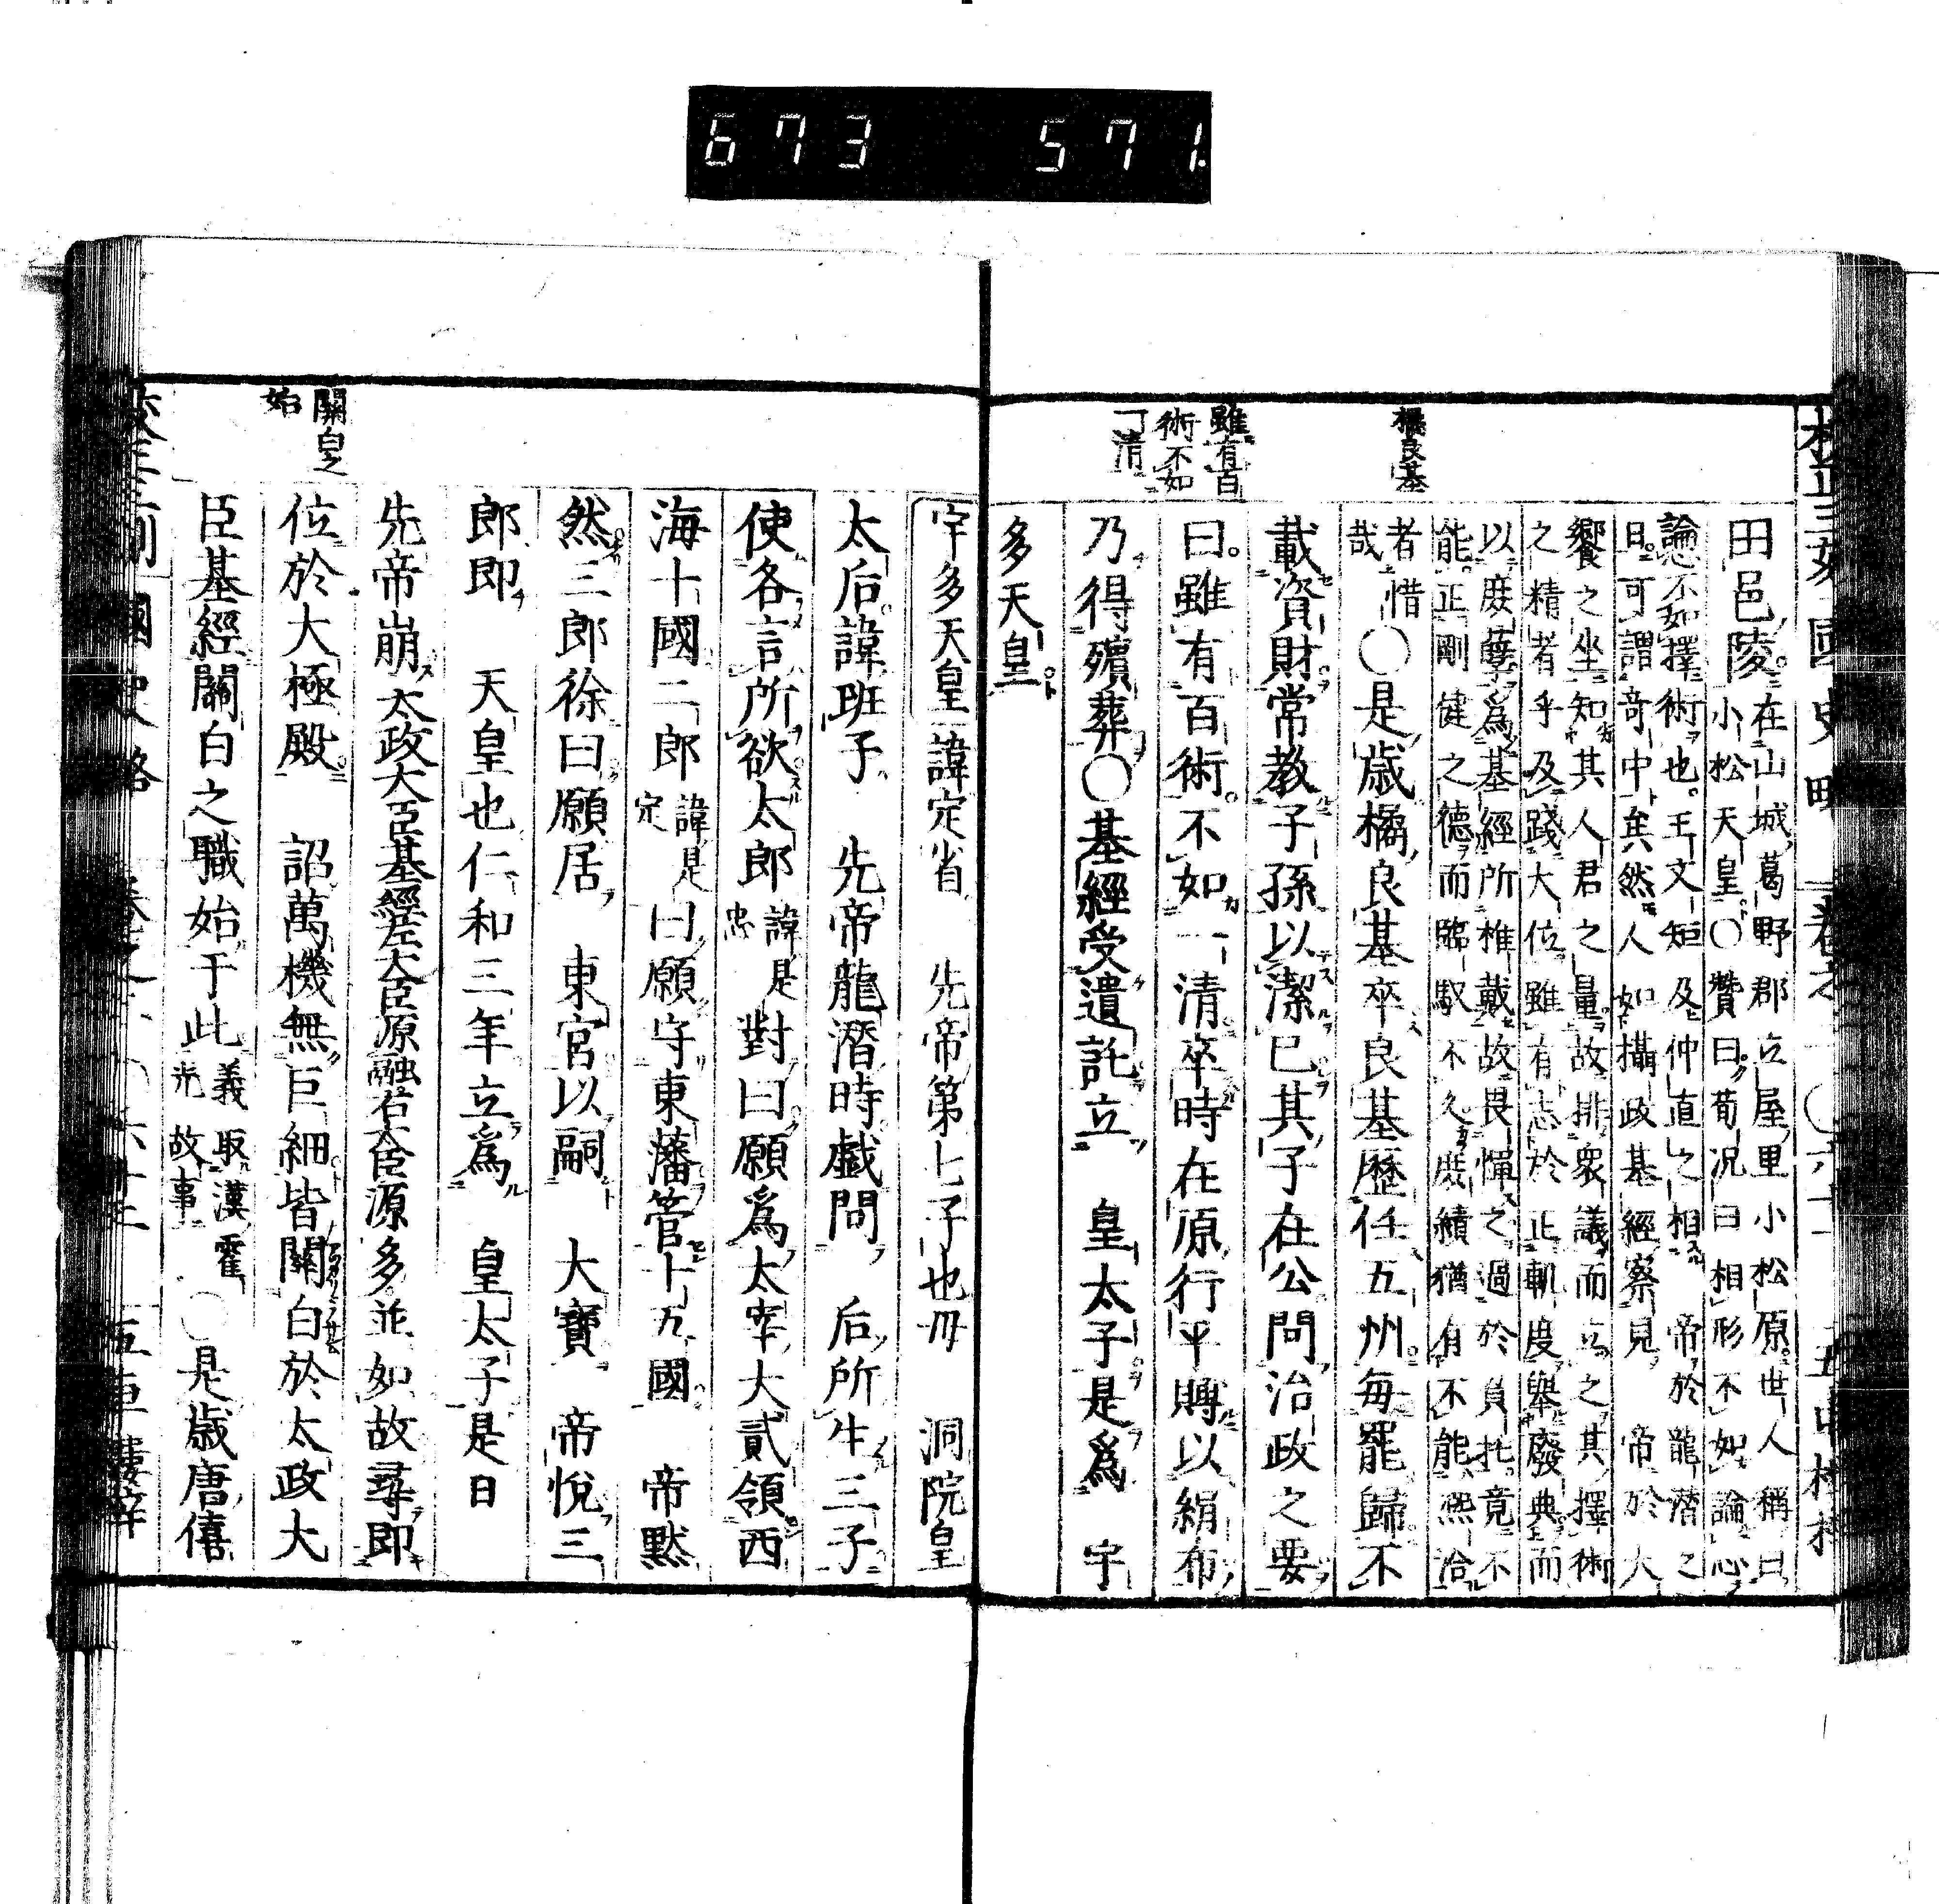 673 571.
橘良基
雖有百
術不如
一清
田邑陵。在山城葛野郡立屋里小松原。世人稱曰
小松天皇〇贊曰。荀况曰相形不如論心
論心不如擇術也。王文矩及仲直之相 帝於龍潛之
日。可謂奇中矣然人 如攝政基經察見 帝於大
饗之坐知其人君之量。故排衆議而立之其擇術
之精者乎及踐大位雖有志於正軌度舉廢典而
以庶孽爲基經所推戴故畏憚之過於負托竟不
能。正剛健之德而臨馭不久庶績猶有不能熈洽
者惜
哉
〇是歳橘良基卒良基歷任五州。每罷歸不
載資財常教子孫以潔已其子在公問治政之要
曰。雖有百術。不如一清卒時在原行平賻以絹布
乃得殯葬〇基經受遺託立 皇太子是爲 宇
多天皇。
宇多天皇諱定省 先帝第七子也毋 洞院皇
太后諱班子 先帝龍潛時戲問 后所生三子
使各言所欲太郎諱是
忠對曰願爲太宰大貳領西
海十國二郎諱是
定曰願守東藩管十五國 帝默
然三郎徐曰願居 東宮以嗣 大寶 帝悅三
郎即 天皇也仁和三年立爲 皇太子是日
先帝崩太政大臣基經左大臣源融右大臣源多並如故尋即
位於大極殿 詔萬機無巨細皆關白於太政大
臣基經關白之職始于此義取漢霍
光故事〇是歳唐僖
關白之
始